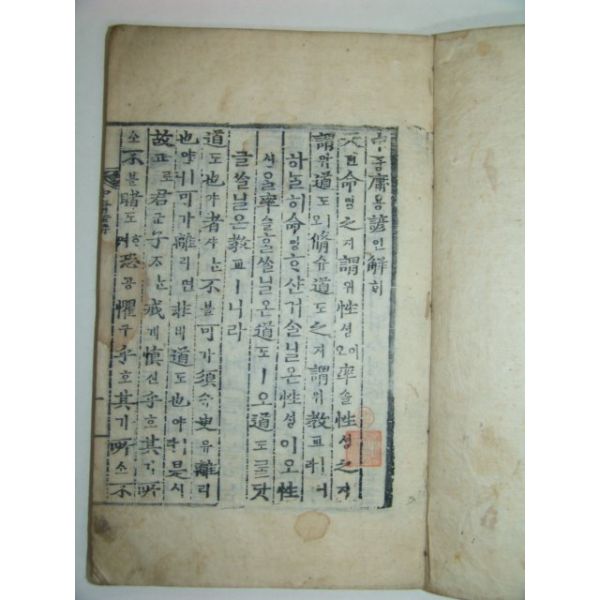 中듕庸용諺언解ᄒᆡ
天텬命명之지謂위性셩이오率솔性셩之지
謂위道도오脩슈道도之지謂위教교ㅣ니라
하ᄂᆞᆯ히命명ᄒᆞ샨거슬닐온性셩이오性
셩을率솔ᄒᆞᆯᄊᆞᆯ닐온道도ㅣ오道도ᄅᆞᆯ닷
글ᄊᆞᆯ닐온敎교ㅣ니라
道도也야者쟈ᄂᆞᆫ不블可가須슈臾유離리
也야ㅣ니可가離리면非비道도也야ㅣ라是시
故고로君군子ᄌᆞᄂᆞᆫ戒계愼신乎호其기所
소不블睹도ᄒᆞ며恐공懼구乎호其기所소不